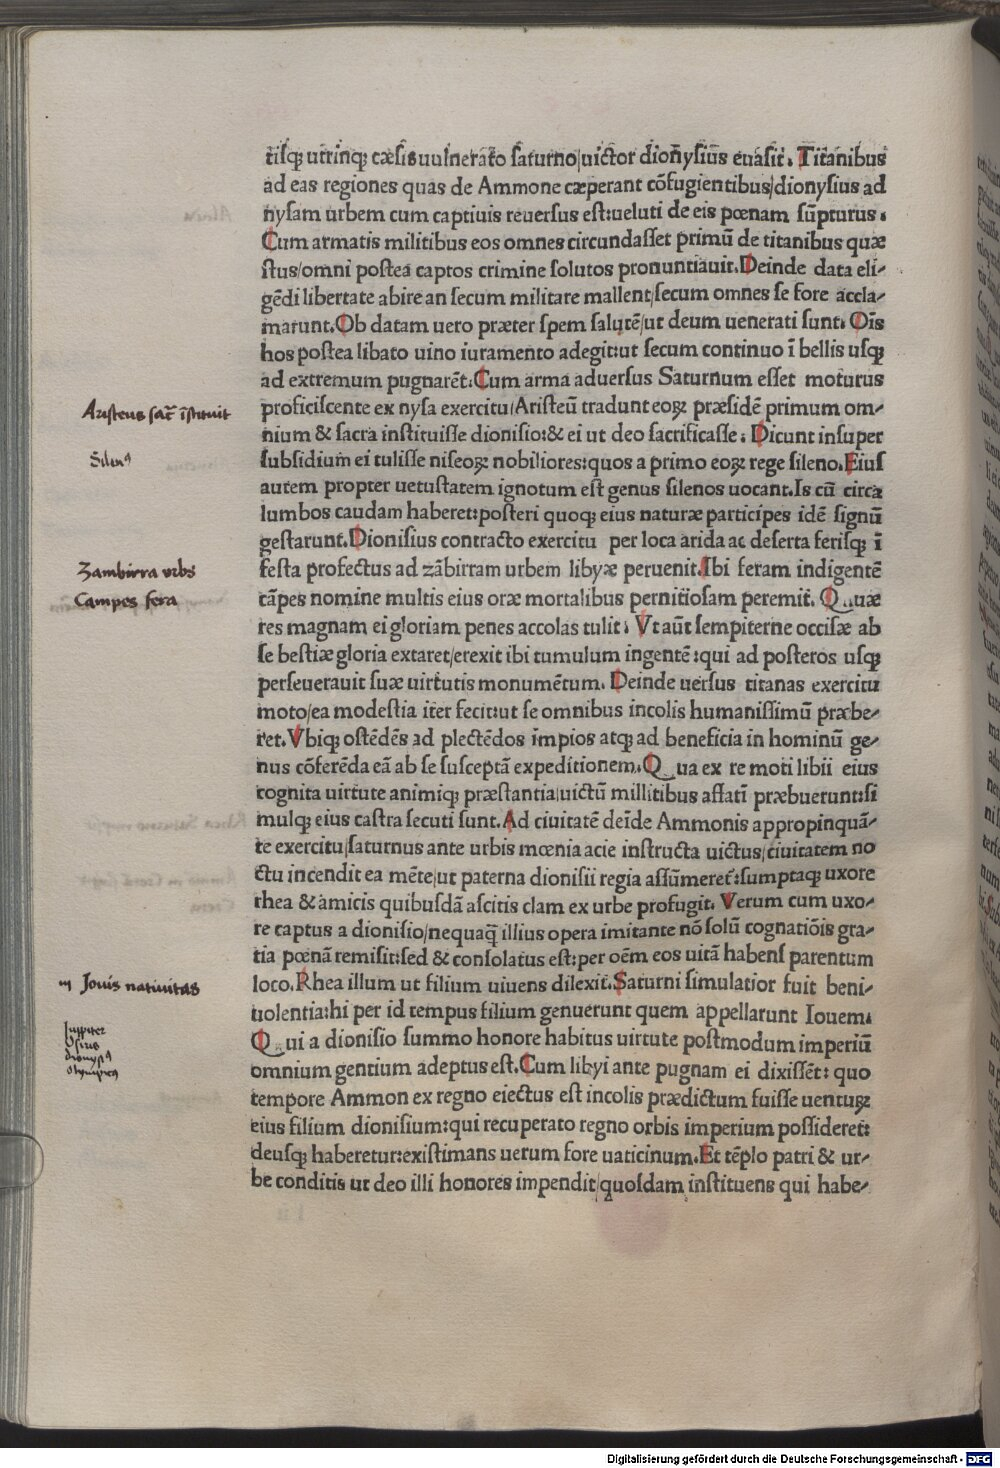 tisq; utrinq; cæsis uulnerato saturno/uictor dioñysius euasit. Titanibus
ad eas regiones quas de Ammone cæperant cõfugientibus/dionysius ad
nysam urbem cum captiuis reuersus est:ueluti de eis pœnam sũpturus.
Cum armatis militibus eos omnes circundasset primũ de titanibus quæ
stus/omni postea captos crimine solutos pronuntiauit. Deinde data eli-
gẽdi libertate abire an secum militare mallent/secum omnes se fore accla-
marunt. Ob datam uero præter spem salutẽ/ut deum uenerati sunt. Oĩs
hos postea libato uino iuramento adegit:ut secum continuo ĩ bellis usq;
ad extremum pugnarẽt. Cum arma aduersus Saturnum esset moturus
Aristeus sac̃ ĩstituit
proficiscente ex nysa exercitu/Aristeũ tradunt eoꝝ præsidẽ primum om-
nium & sacra instituisse dionisio:& ei ut deo sacrificasse. Dicunt insuper
Silenꝰ
subsidium ei tulisse niseoꝝ nobiliores:quos a primo eoꝝ rege sileno. Eius
autem propter uetustatem ignotum est genus silenos uocant. Is cũ circa
lumbos caudam haberet:posteri quoq; eius naturæ participes idẽ signũ
gestarunt. Dionisius contracto exercitu per loca arida ac deserta ferisq; ĩ
Zambirra vrbs
festa profectus ad zãbirram urbem libyæ peruenit. Ibi feram indigentẽ
Campes fera
cãpes nomine multis eius oræ mortalibus pernitiosam peremit. Quæ
res magnam ei gloriam penes accolas tulit. Vt aũt sempiterne occisæ ab
se bestiæ gloria extaret/erexit ibi tumulum ingentẽ:qui ad posteros usq;
perseuerauit suæ uirtutis monumẽtum. Deinde uersus titanas exercitu
moto/ea modestia iter fecit:ut se omnibus incolis humanissimũ præbe-
ret. Vbiq; ostẽdẽs ad plectẽdos impios atq; ad beneficia in hominũ ge-
nus cõferẽda eã ab se susceptã expeditionem. Qua ex re moti libii eius
cognita uirtute animiq; præstantia/uictũ millitibus affatĩ præbuerunt:si
mulq; eius castra secuti sunt. Ad ciuitatẽ deĩde Ammonis appropinquã-
te exercitu/saturnus ante urbis mœnia acie instructa uictus/ciuitatem no
ctu incendit ea mẽte/ut paterna dionisii regia assũmeret̃:sumptaq; uxore
rhea & amicis quibusdã ascitis clam ex urbe profugit. Verum cum uxo-
re captus a dionisio/nequaq̃ illius opera imitante nõ solũ cognatiõis gra-
tia pœnã remisit:sed & consolatus est:per oẽm eos uitã habens parentum
Jouis natiuitas
loco. Rhea illum ut filium uiuens dilexit. Saturni simulatior fuit beni-
uolentia:hi per id tempus filium genuerunt quem appellarunt Iouem.
Iuppiter
Osiris
dionysꝰ
olympicꝰ
Qui a dionisio summo honore habitus uirtute postmodum imperiũ
omnium gentium adeptus est. Cum libyi ante pugnam ei dixissẽt: quo
tempore Ammon ex regno eiectus est incolis prædictum fuisse uentuꝝ
eius filium dionisium:qui recuperato regno orbis imperium possideret:
deusq; haberetur:existimans uerum fore uaticinum. Et tẽplo patri & ur-
be conditis ut deo illi honores impendit/quosdam instituens qui habe-
Digitalisierung gefördert durch die Deutsche Forschungsgemeinschaft - DFG